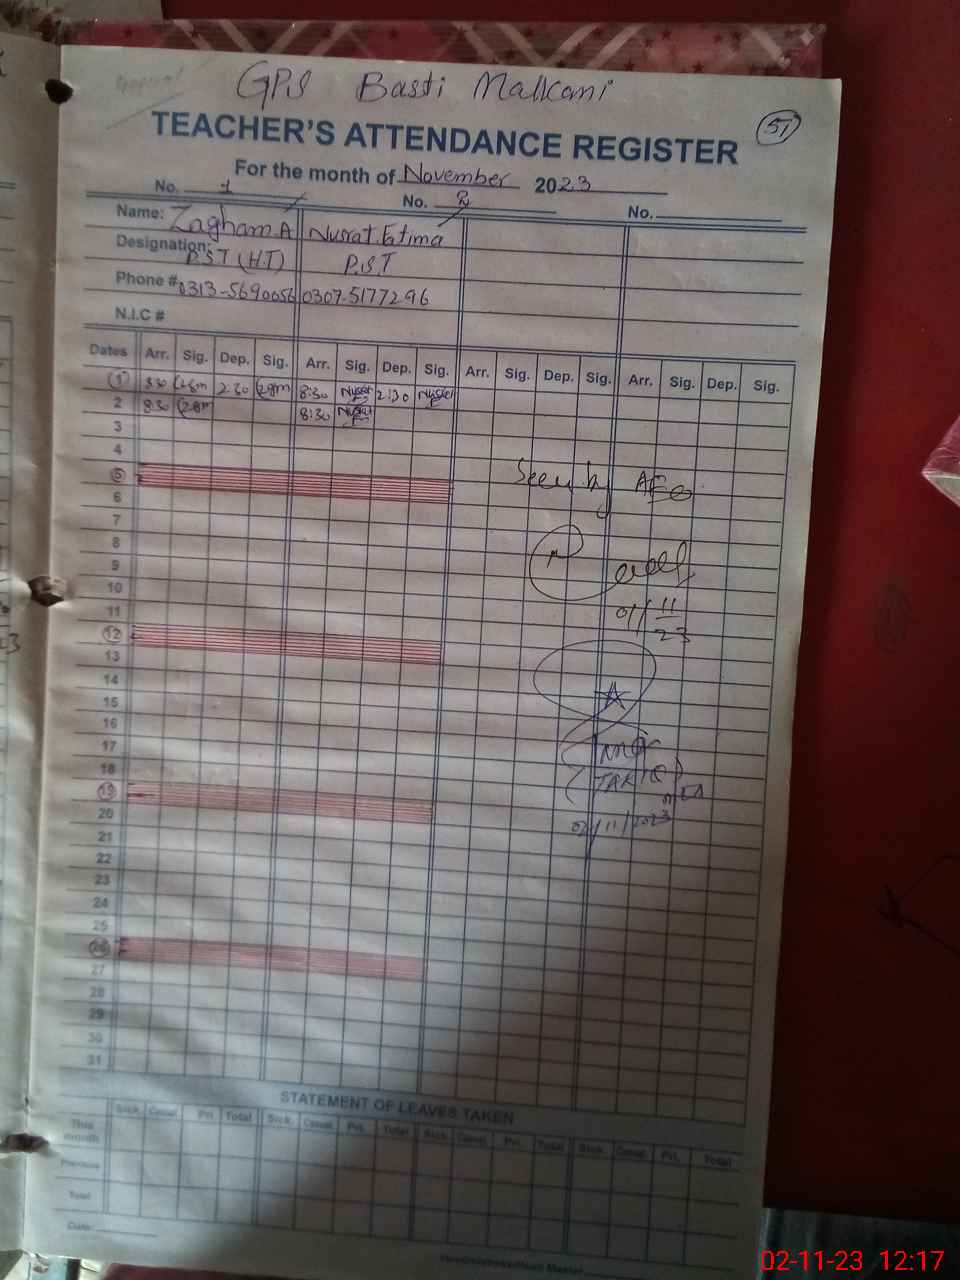 GPS Basti Malkani
51
TEACHER'S ATTENDANCE REGISTER
For the month of November 2023
No. 1 No. 2 No.
Name: Zagham.A Nusrat Fatima
Designation: P.S.T (H.T) P.S.T
Phone # 0313-5690056 0307-5177296
N.I.C #
Dates Arr. Sig. Dep. Sig. Arr. Sig. Dep. Sig. Arr. Sig. Dep. Sig. Arr. Sig. Dep. Sig.
1 8:30 2:30 8:30 Nusrat 2:30 Nusrat
2 8:30 8:30 Nusrat
3
4
5
Seen by AEO
6
7
8
9
10
11
01/11/23
12
13
14
15
16
17
18
19
20
02/11/2023
21
22
23
24
25
26
27
28
29
30
31
STATEMENT OF LEAVES TAKEN
Sick. Casual. Pri. Total Sick. Casual. Pri. Total Sick. Casual. Pri. Total Sick. Casual. Pri. Total
This month
Previous
Total
Date:
02-11-23 12:17